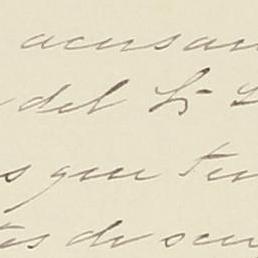 acusan
del Sr
s que ten
tes de seu